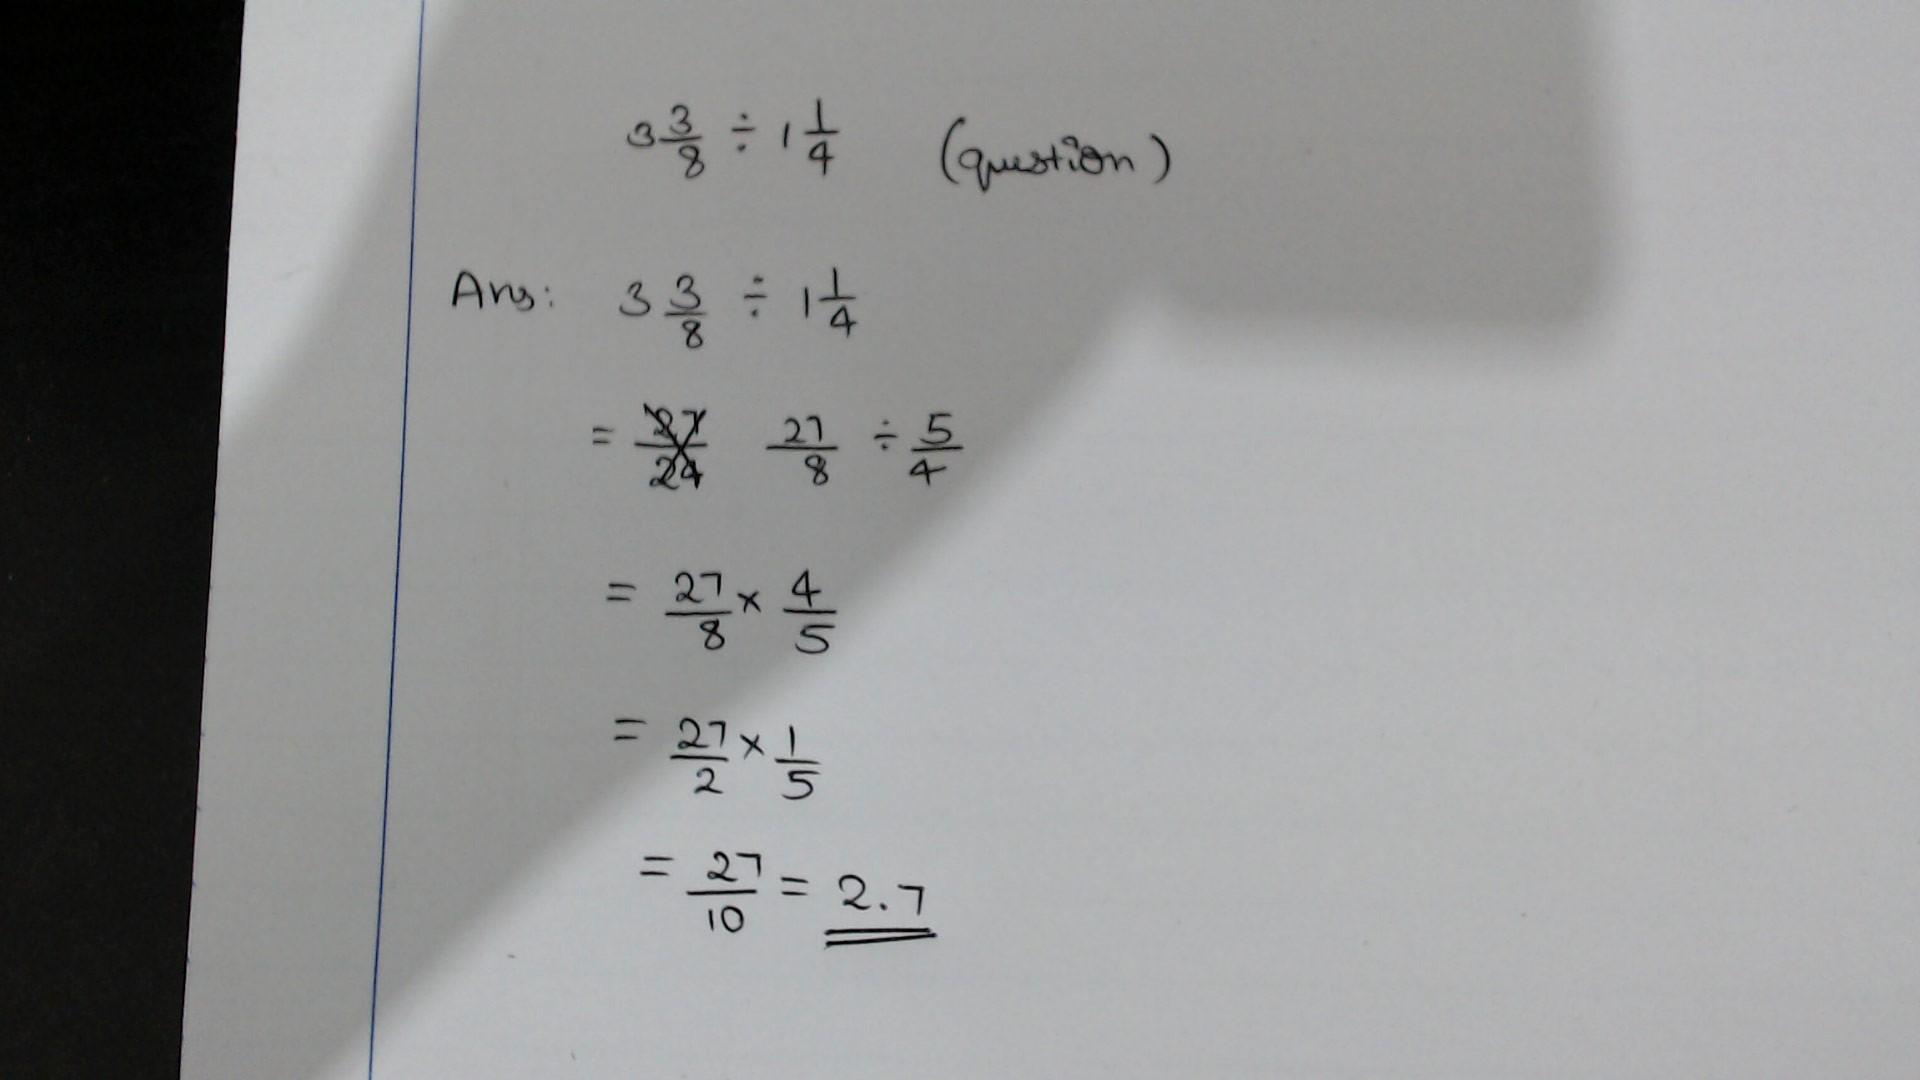 3 3/8 ÷ 1 1/4 (question)
Ans: 3 3/8 ÷ 1 1/4
= 27/24 27/8 ÷ 5/4
= 27/8 × 4/5
= 27/2 × 1/5
= 27/10 = 2.7